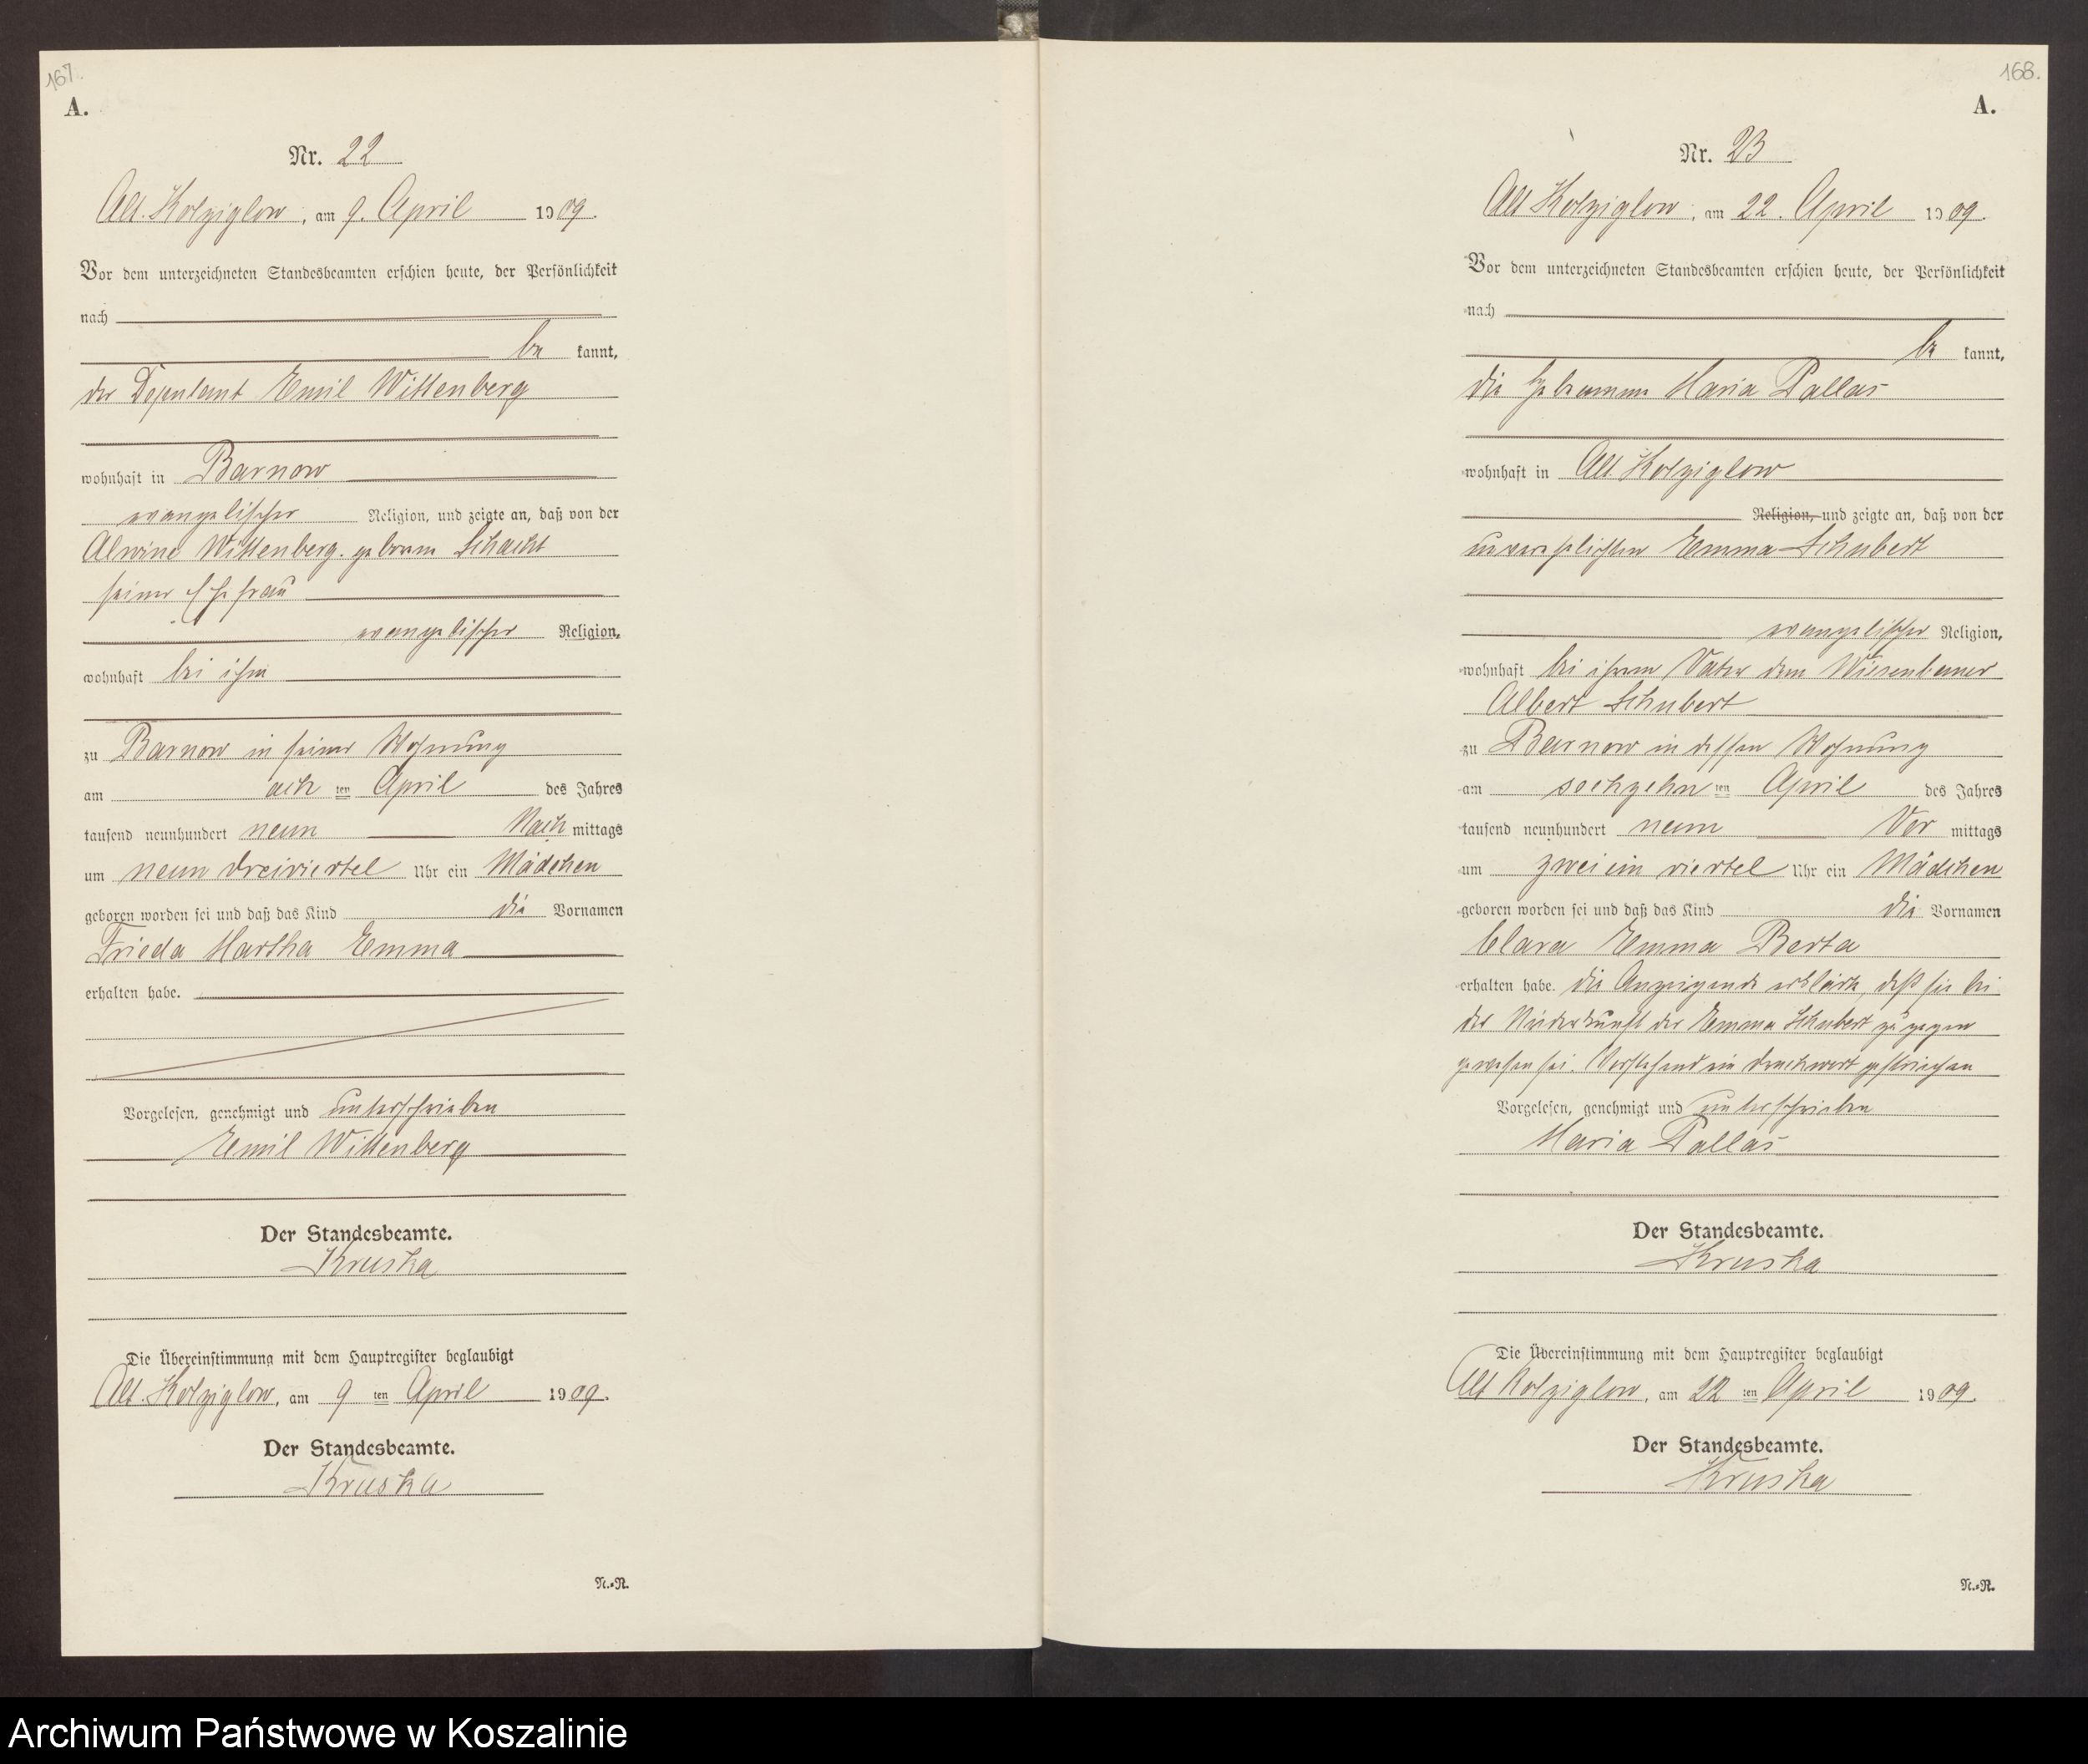 167.
A.
Nr. 22
Alt. Kolziglow, am 9. April 1909.
Vor dem unterzeichneten Standesbeamten erschien heute, der Persönlichkeit
nach
be kannt,
der Deputant Emil Wittenberg
wohnhaft in Barnow
evangelischer Religion, und zeigte an, daß von der
Alwine Wittenberg geborene Schacht
seiner Ehefrau
evangelischer Religion,
wohnhaft bei ihm
zu Barnow in seiner Wohnung
am acht ten April des Jahres
tausend neunhundert neun Nach mittags
um neun dreiviertel Uhr ein Mädchen
geboren worden sei und daß das Kind die Vornamen
Frieda Martha Emma
erhalten habe.
Vorgelesen, genehmigt und unterschrieben
Emil Wittenberg
Der Standesbeamte.
Kruska
Die Übereinstimmung mit dem Hauptregister beglaubigt
Alt. Kolziglow, am 9 ten April 1909.
Der Standesbeamte.
Kruska
N.=R.
168.
A.
Nr. 23
Alt Kolziglow, am 22. April 1909.
Vor dem unterzeichneten Standesbeamten erschien heute, der Persönlichkeit
nach
be kannt,
die Hebamme Maria Pallas
wohnhaft in Alt. Kolziglow
Religion, und zeigte an, daß von der
unverehelichten Emma Schubert
evangelischer Religion,
wohnhaft bei ihrem Vater dem Wiesenbauer
Albert Schubert
zu Barnow in dessen Wohnung
am sechzehn ten April des Jahres
tausend neunhundert neun Vor mittags
um zwei ein viertel Uhr ein Mädchen
geboren worden sei und daß das Kind die Vornamen
Clara Emma Berta
erhalten habe. die Anzeigende erklärte, daß sie bei
der Niederkunft der Emma Schubert zugegen
gewesen sei. Vorstehend ein Druckwort gestrichen
Vorgelesen, genehmigt und unterschrieben
Maria Pallas
Der Standesbeamte.
Kruska
Die Übereinstimmung mit dem Hauptregister beglaubigt
Alt Kolziglow, am 22 ten April 1909.
Der Standesbeamte.
Kruska
N.=R.
Archiwum Państwowe w Koszalinie